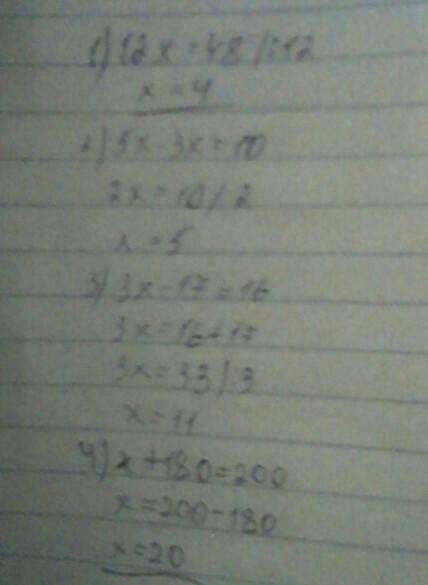 1) 12x = 48 /:12
x = 4
2) 5x - 3x = 10
2x = 10 /:2
x = 5
3) 3x - 17 = 16
3x = 16 + 17
3x = 33 /:3
x = 11
4) x + 180 = 200
x = 200 - 180
x = 20